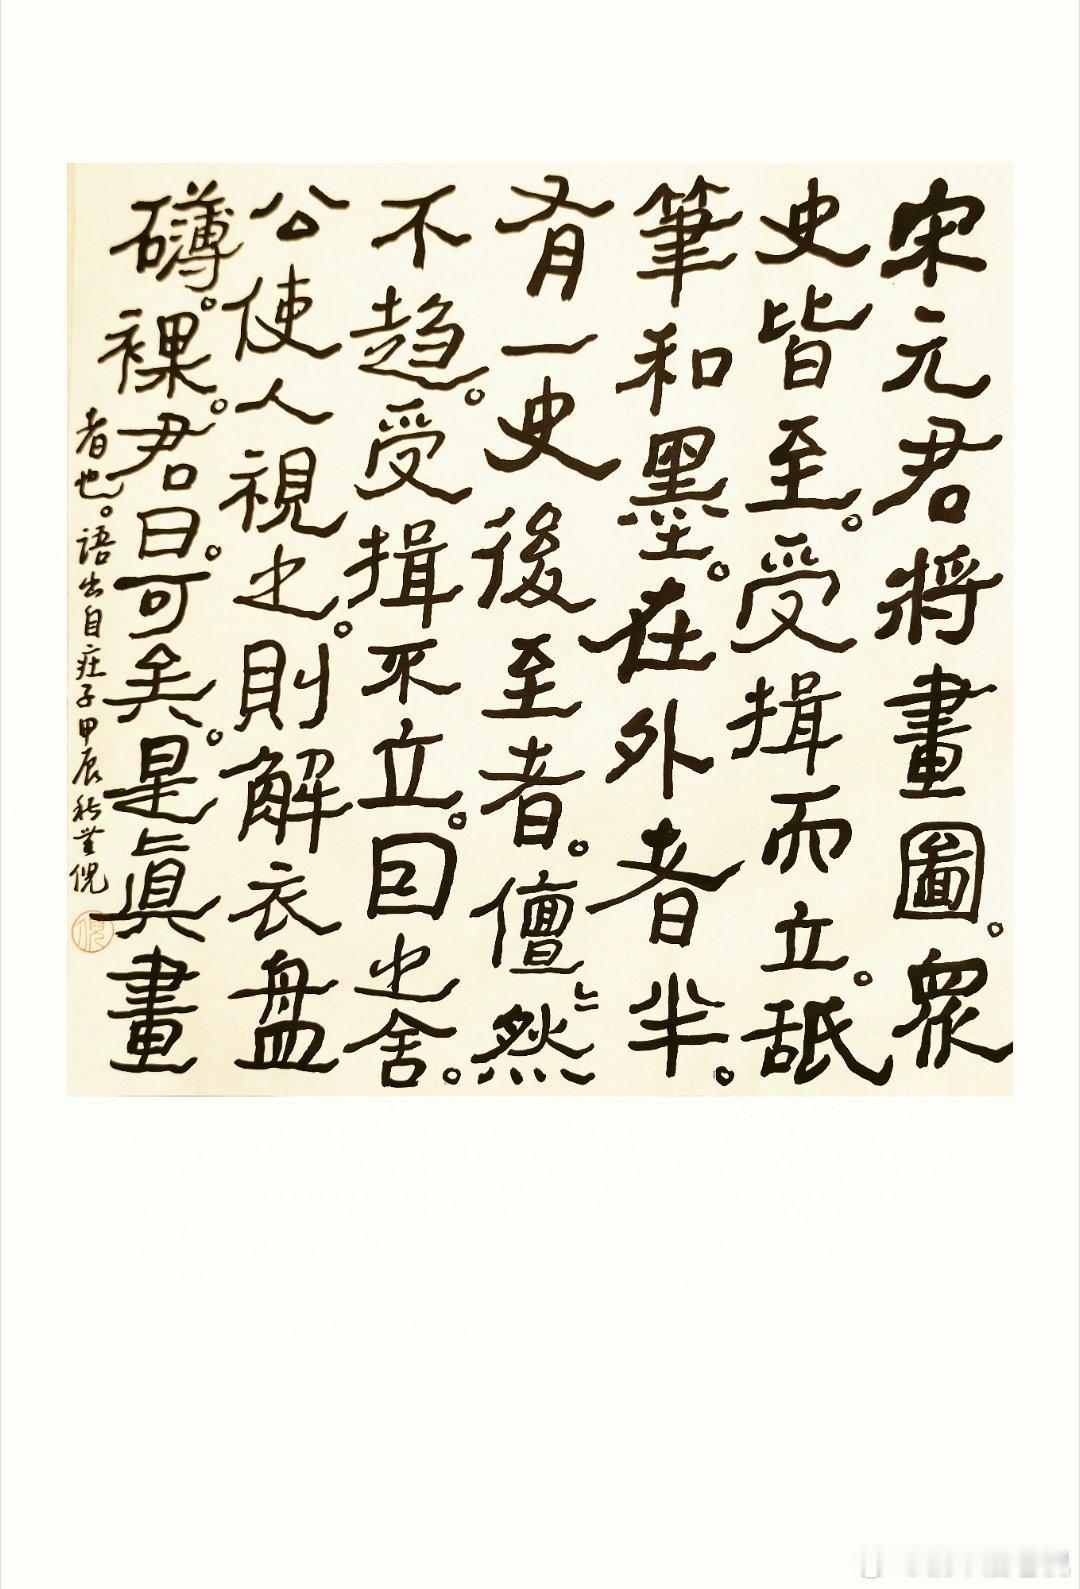 宋元君将畫圖。眾
史皆至。受揖而立。舐
筆和墨。在外者半。
有一史後至者。儃〻然
不趋。受揖不立。因之舍。
公使人視之。則解衣盘
礴。裸。君曰。可矣。是真畫
者也。語出自庄子甲辰秋 倪
倪